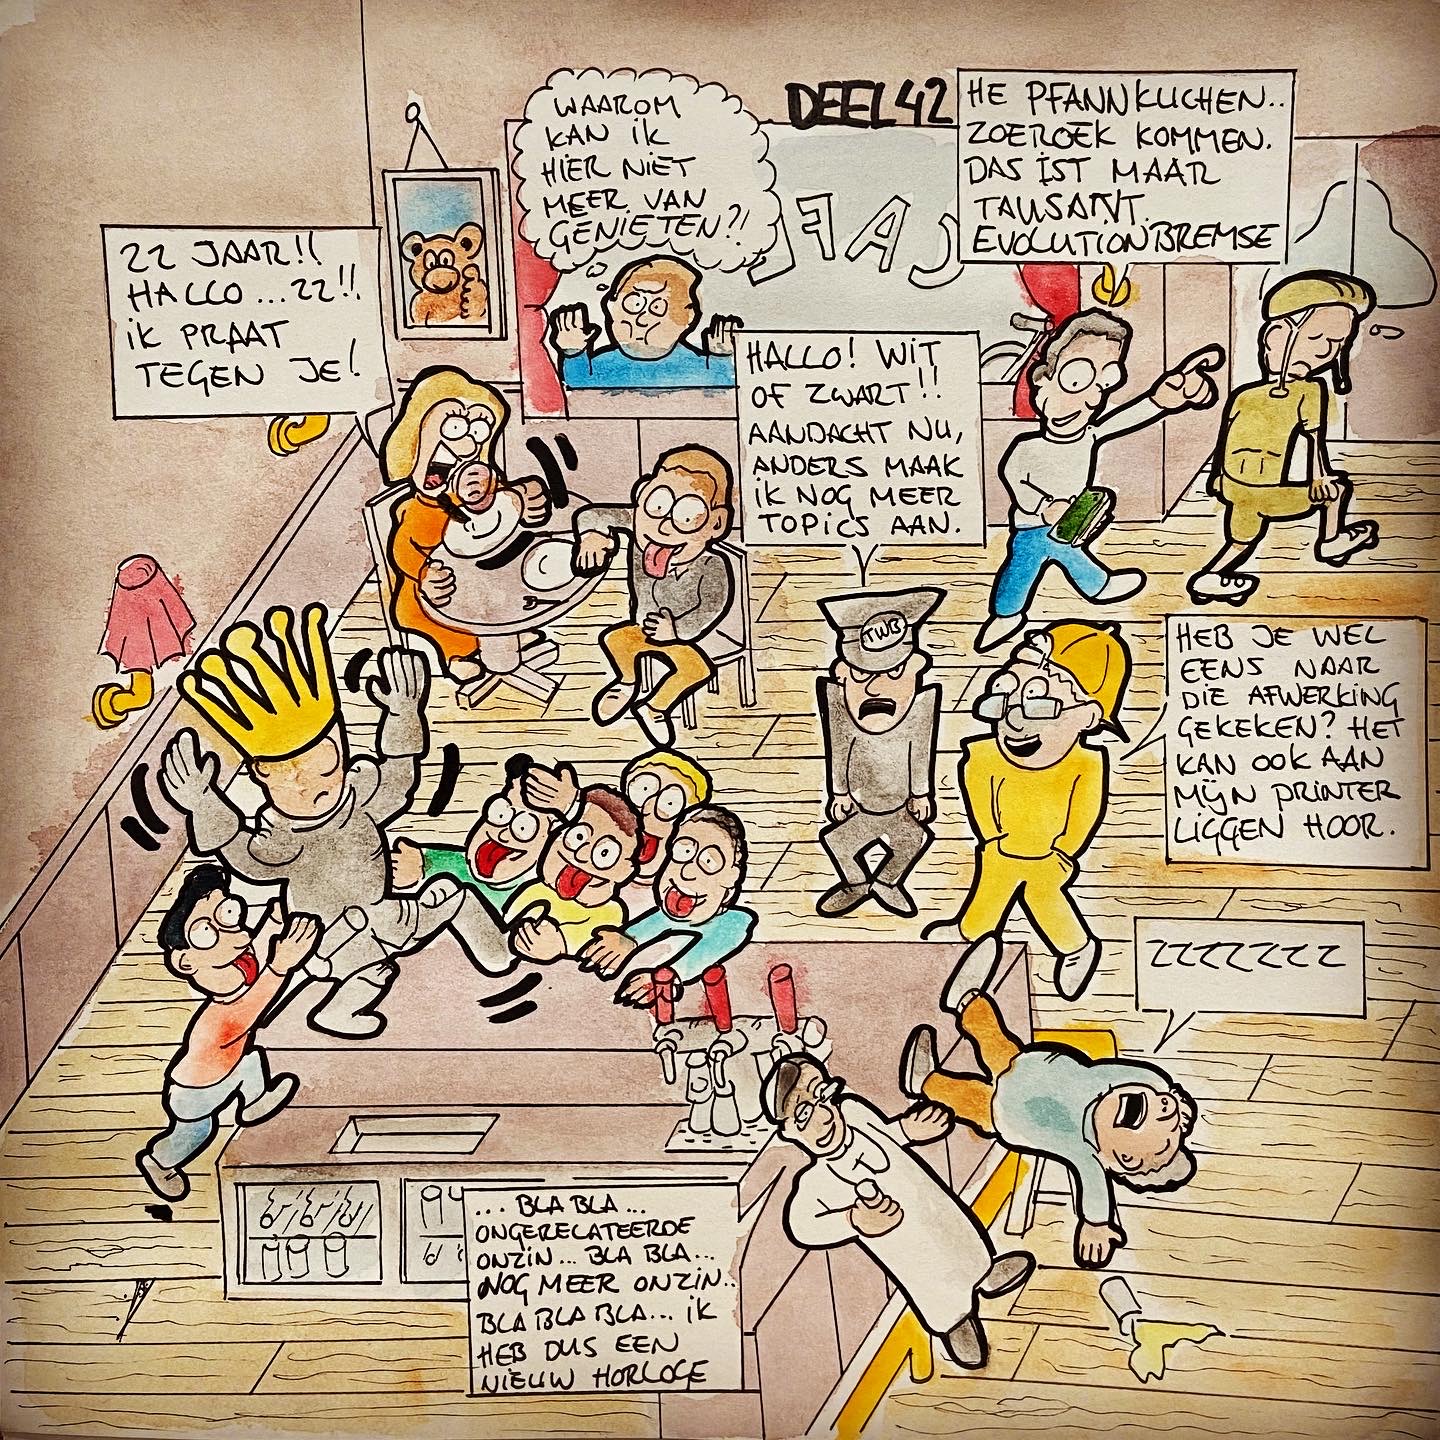 DEEL 42
WAAROM
KAN IK
HIER NIET
MEER VAN
GENIETEN?!
HE PFANNKUCHEN..
ZOEROEK KOMMEN.
DAS IST MAAR
TAUSANT.
EVOLUTIONBREMSE
CAF
22 JAAR!!
HALLO...22!!
IK PRAAT
TEGEN JE!
HALLO! WIT
OF ZWART!!
AANDACHT NU,
ANDERS MAAK
IK NOG MEER
TOPICS AAN.
TWB
HEB JE WEL
EENS NAAR
DIE AFWERKING
GEKEKEN? HET
KAN OOK AAN
MIJN PRINTER
LIGGEN HOOR.
ZZZZZZZ
... BLA BLA ...
ONGERELATEERDE
ONZIN... BLA BLA...
NOG MEER ONZIN..
BLA BLA BLA... IK
HEB DUS EEN
NIEUW HORLOGE